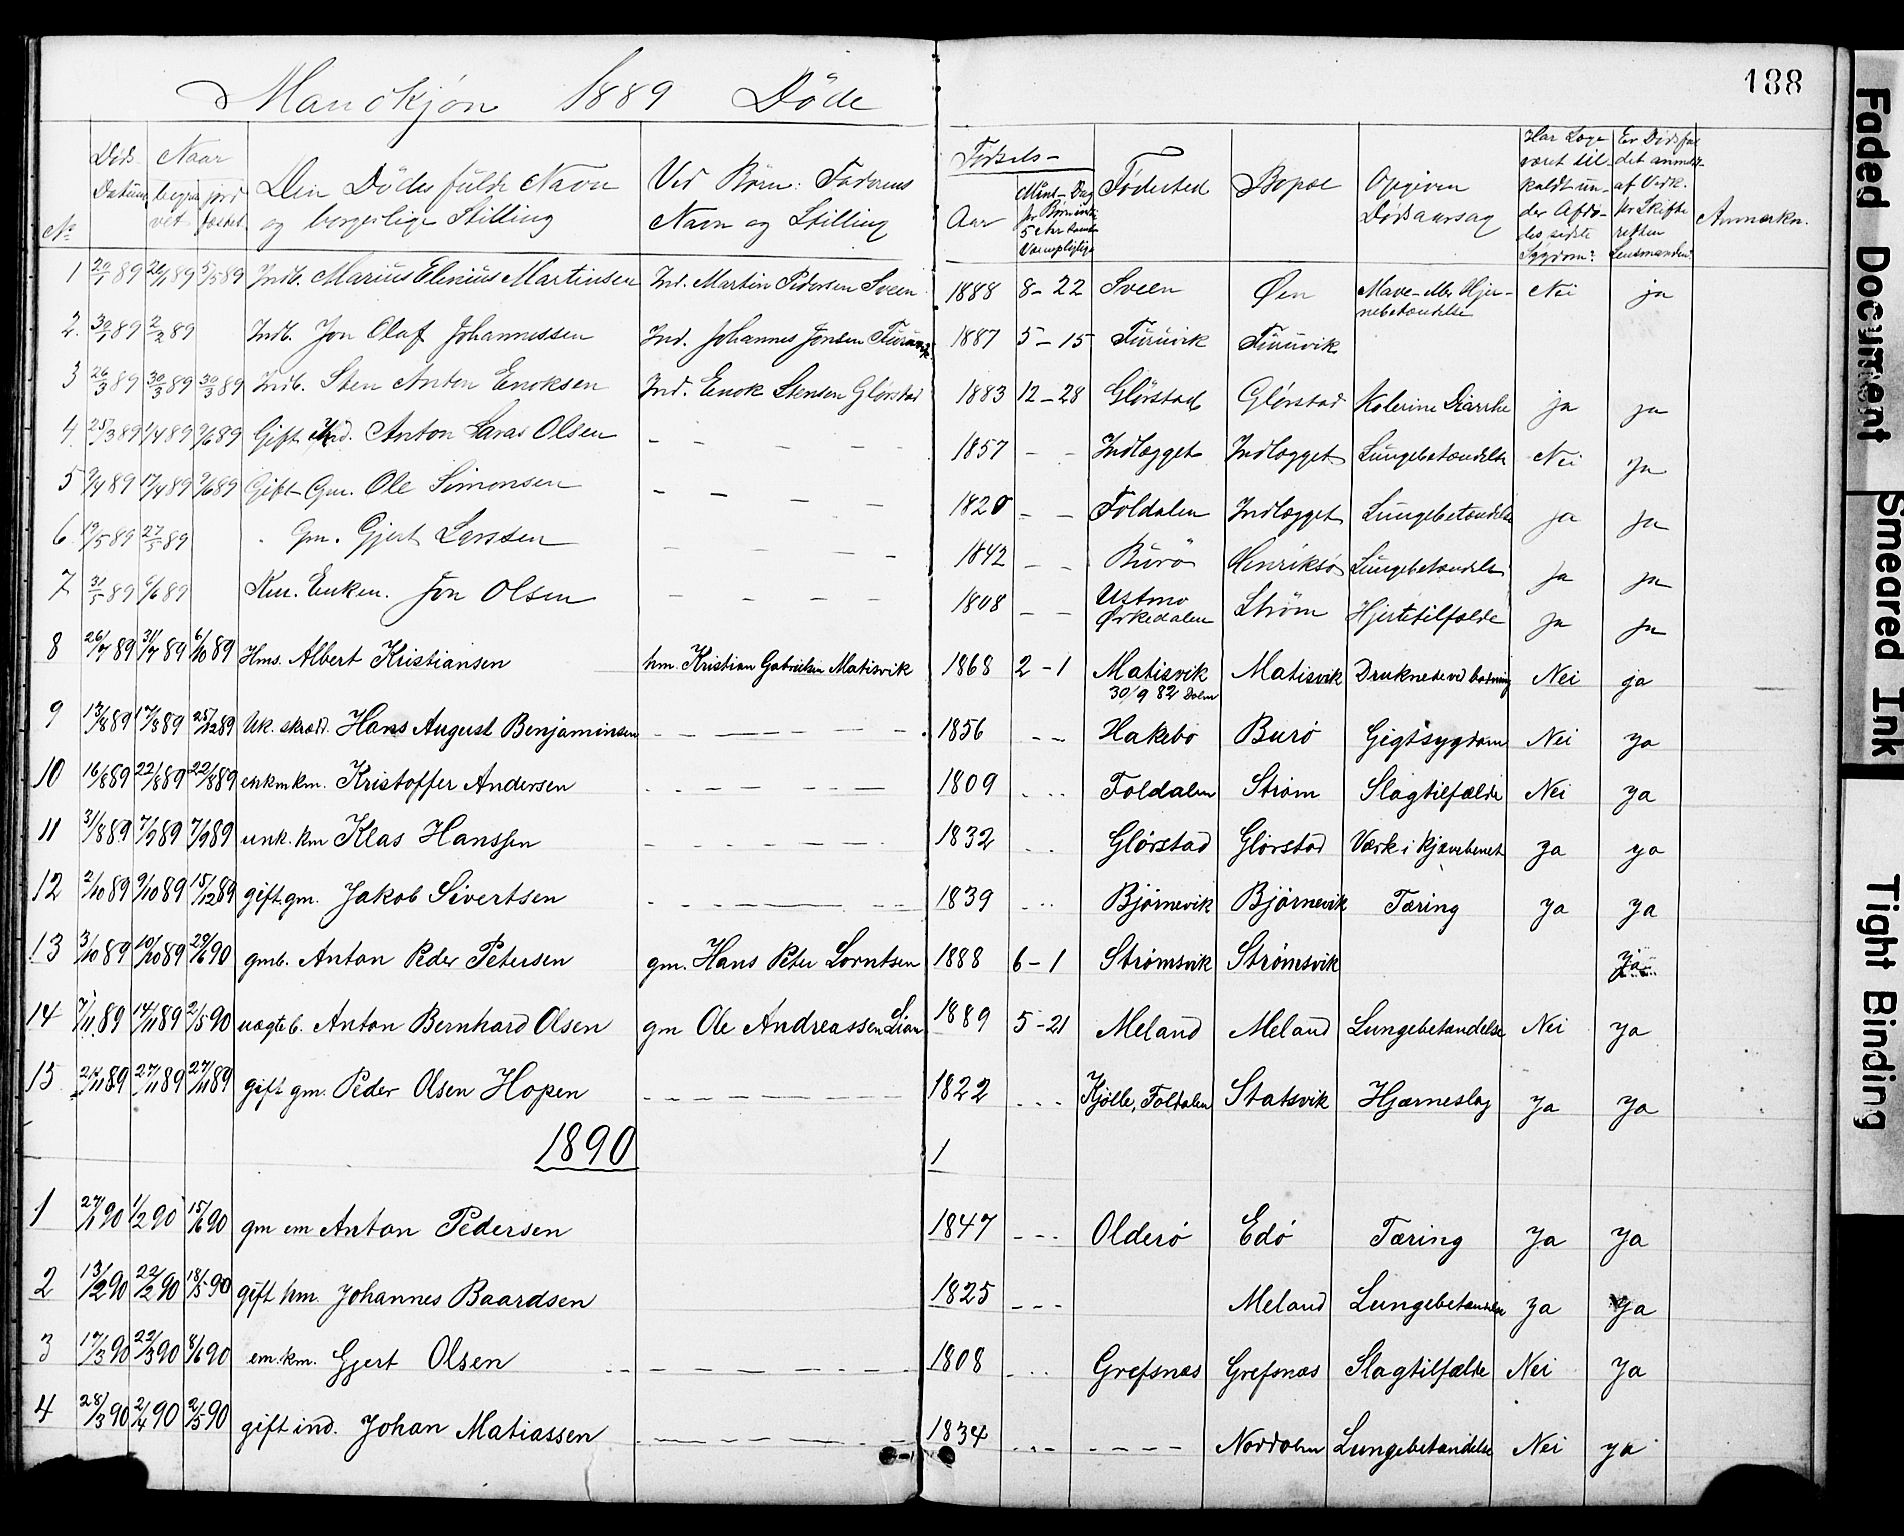 Mandkjøn 1889 Døde
188
No
Døds Datum
Naar begravet
jordfæstet
Den Dødes fulde Navn og borgerlige Stilling
Ved Børn: Faderens Navn og Stilling
Fødsels-
Aar
Fødested
Bopæl
Opgiven Dødsaarsag
Har Læge været tilkaldt under Afdødes sidste Sygdom?
Er Dødsfaldet anmeldt af Vedk. for Skifteretten Lensmanden
Anmærkn.
1 20/1 89 26/1 89 5/5 89 Indb. Marius Elenius Martinsen Ind. Martin Pedersen Sveen 1888 8-22 Sveen Øen Mave- eller Hjernebetændelse Nei ja
2. 30/1 89 2/2 89 Indb. Jon Olaf Johannessen Ind. Johannes Jonsen Furuvik 1887 5-15 Furuvik Furuvik
3 26/3 89 30/3 89 30/3 89 Indb. Sten Anton Enoksen Ind. Enok Stensen Glørstad 1883 12-28 Glørstad Glørstad Kolerine Diarrhe ja ja
4. 25/3 89 1/4 89 9/6 89 Gift Ind. Anton Laras Olsen - - - - 1857 - - Indlægget Indlægget Lungebetændelse Nei Ja
5 9/4 89 17/4 89 9/6 89 Gift Gm. Ole Simonsen - - - - 1820 - - Foldalen Indlægget Lungebetændelse ja ja
6. 19/5 89 27/5 89 Gm. Gjert Larssen - - - - 1842 - - Burø Henriksø Lungebetændelse ja ja
7 31/5 89 6/6 89 Km. Enken. Jon Olsen - - - - 1808 - - Ustmo Ørkedalen Strøm Hjertetilfælde ja ja
8 26/7 89 31/7 89 6/10 89 Hms. Albert Kristiansen hm. Kristian Gabrielsen Matisvik 1868 2-1 Matisvik 30/9 82 Matisvik Druknede ved badning Nei ja
9 13/8 89 17/8 89 25/12 89 Uk. skræd. Hans August Benjaminsen - - - - - - 1856 - - Hakebo Burø Gigtsygdom Nei ja
10 16/8 89 22/8 89 22/8 89 enkm km. Kristoffer Andersen - - - - - - 1809 - - - Foldalen Strøm Slagtilfælde Nei ja
11 31/8 89 7/9 89 7/9 89 unk. km Klas Hanssen - - - - - - 1832 - - - Glørstad Glørstad Værk i kjævebenet ja ja
12 2/10 89 9/10 89 15/12 89 gift gm. Jakob Sivertsen - - - - - - 1839 - - - Bjørnevik Bjørnevik Tæring ja ja
13 3/10 89 10/10 89 29/6 90 gmb. Anton Peder Petersen gm. Hans Peter Lorntsen 1888 6-1 Strømsvik Strømsvik ja
14 7/11 89 14/11 89 2/5 90 uægte b. Anton Bernhard Olsen gm Ole Andreassen Lian 1889 5-21 Meland Meland Lungebetændelse Nei ja
15 21/11 89 27/11 89 27/11 89 gift gm. Peder Olsen Hopen - - - - - - 1822 - - - Kjølle, Foldalen Statsvik Hjærneslag ja ja
1890
1 27/1 90 1/2 90 15/6 90 gm em Anton Pedersen 1847 - - - Olderø Edø Tæring ja ja
2 13/2 90 22/2 90 18/5 90 gift hm. Johannes Baardsen 1825 - - - Meland Lungebetændelse ja ja
3 17/3 90 22/3 90 8/6 90 em. km. Gjert Olsen - - - - - - 1808 - - - Grefsnæs Grefsnæs Slagtilfælde Nei ja
4 28/3 90 2/4 90 2/5 90 gift ind. Johan Matiassen - - - - - - 1834 - - - - - - - Norddalen Lungebetændelse Nei ja
Faded Document
Smeared Ink
Tight Binding